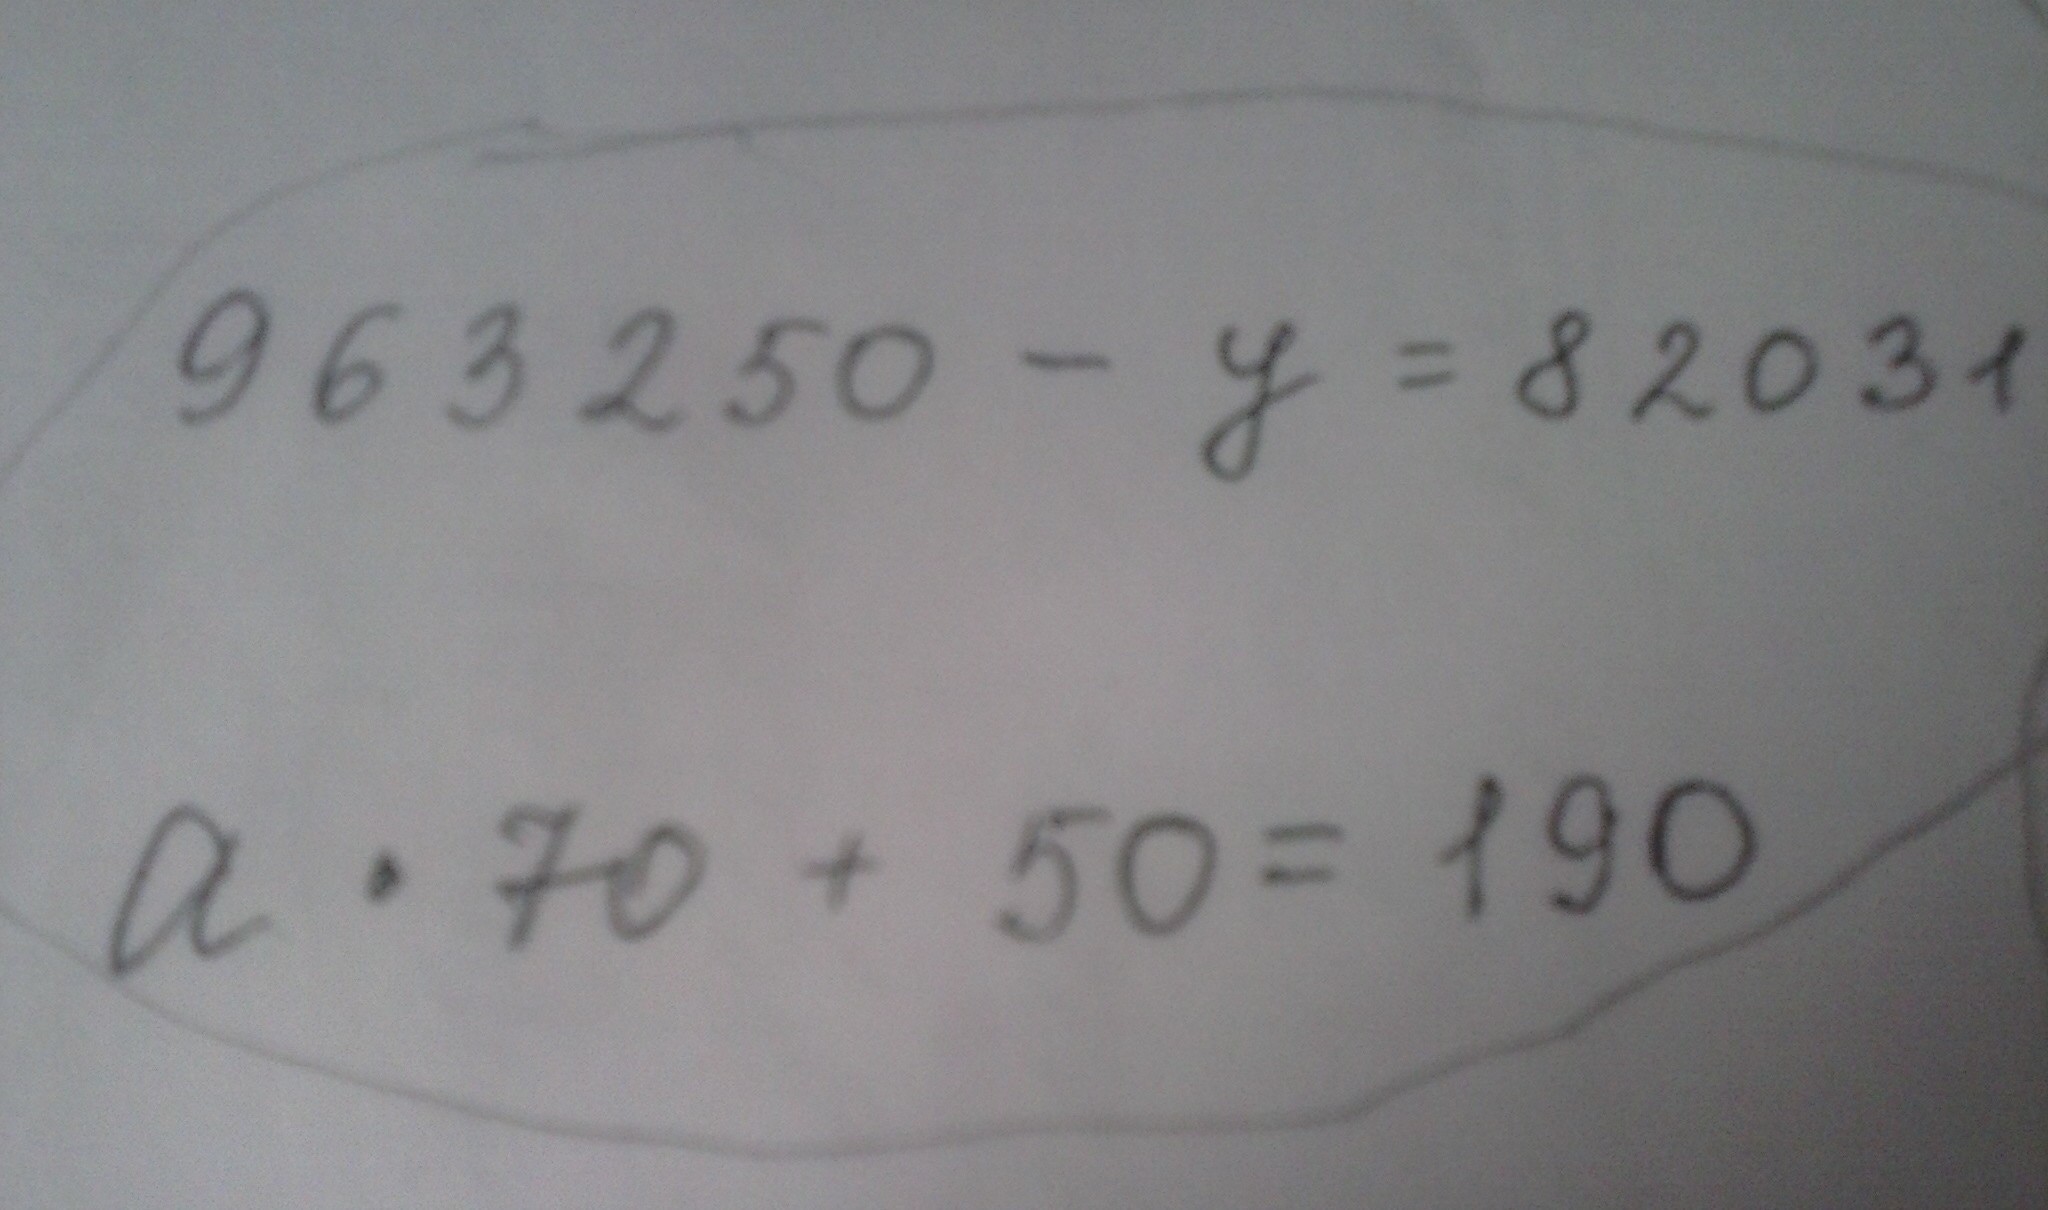 963250 - y = 82031
a · 70 + 50 = 190